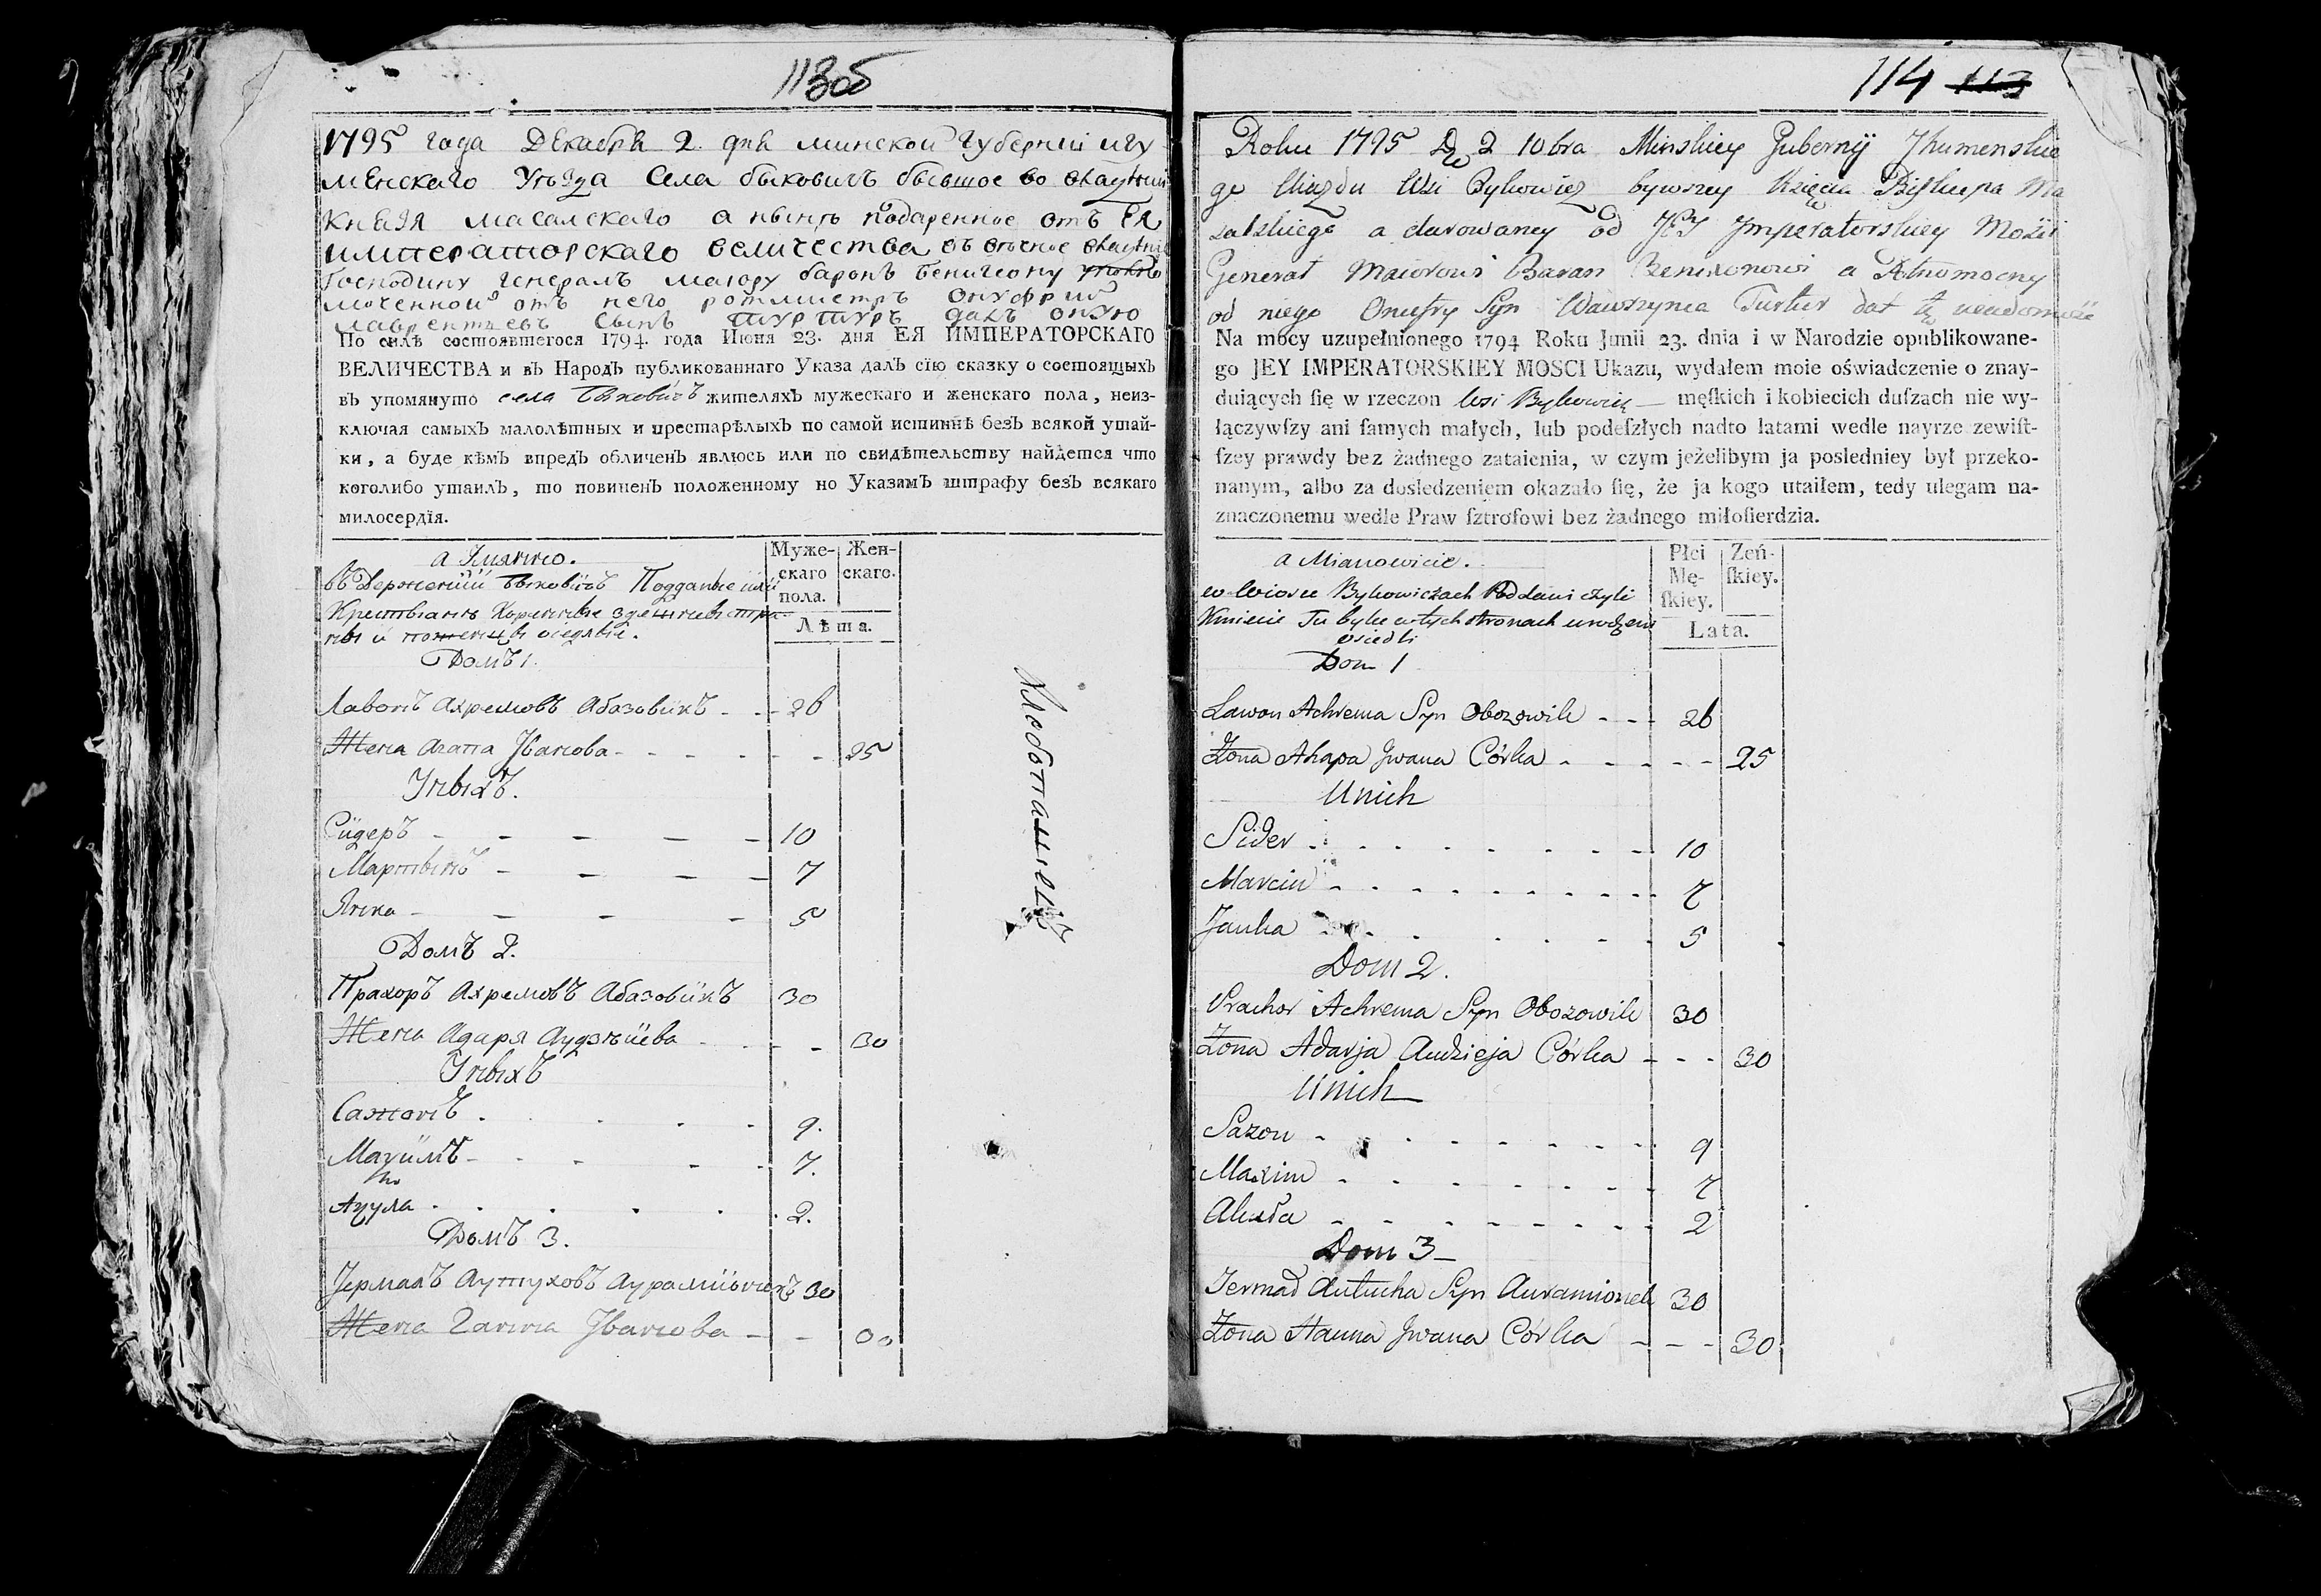 113об
1795 года Декабря 2 дня минской губерніи игу
менскаго Уѣзда Села быковичъ бывшое во владѣнии
Князя масалскаго а нынѣ подаренное отъ Ея
императорскаго величества въ вѣчное владѣние
Господину генералъ маіору баронъ Бенигсону
моченной отъ него ротмистръ онуфрий
лаврентьевъ сынъ туртуръ далъ оную
По силѣ состоявшегося 1794. года Июня 23. дня ЕЯ ИМПЕРАТОРСКАГО
ВЕЛИЧЕСТВА и въ Народъ публикованнаго Указа далъ сїю сказку о состоящыхъ
въ упомянуто села Быковичъ жителяхъ мужескаго и женскаго пола, неиз-
ключая самыхъ малолѣтныхъ и престарѣлыхъ по самой истиннѣ безъ всякой утай-
ки, а буде кѣмъ впредъ обличенъ явлюсь или по свидѣтельству найдется что
коголибо утаилъ, то повиненъ положенному по Указамъ штрафу безъ всякаго
милосердїя.
а Имянно.
въ Деревни Быковичъ Подданые или
Крестьяне Коренные здешневы стра-
ны и оседлые.
Муже- Жен-
скаго скаго.
пола.
Лѣта.
Домъ 1.
Лавонъ Ахремовъ Абазовикъ - - 26
Жена Агапа Иванова - - - - - 25
У ныхъ.
Сидеръ - - - - - 10
Мартынъ - - - - 7
Янка - - - - 5
Домъ 2.
Прахоръ Ахремовъ Абазовикъ 30
Жена Адаря Аудзѣева - - - 30
У ныхъ
Сазонъ . . . . 9.
Махимъ - - - - 7.
Ахула . . . . 2.
Домъ 3.
Јермалъ Аутуховъ Аурамионекъ 30
Жена Ганна Иванова - -
114 113
Roku 1795 D 2 10bra Minskiey Gubernij Jhumenskie
go Uiazdu Wsi Bykowicz bywszey Xięcia Biskupa Ma
salskiego a darowaney od JEJ Jmperatorskiey Mości
Generał Maiorowi Baron Benixonowi a Pełnomocny
od niego Onufry Syn Wawrzynca Turtur dał tę wiadomość
Na mocy uzupełnionego 1794 Roku Junii 23. dnia i w Narodzie opublikowane-
go JEY IMPERATORSKIEY MOSCI Ukazu, wydałem moie oświadczenie o znay-
duiących ſię w rzeczon Wsi Bykowicz — męſkich i kobiecich duſzach nie wy-
łączywſzy ani ſamych małych, lub podeſzłych nadto latami wedle nayrze zewiſt-
ſzey prawdy bez żadnego zataienia, w czym jeżelibym ja posledniey był przeko-
nanym, albo za dosledzeniem okazało ſię, że ja kogo utaiłem, tedy ulegam na-
znaczonemu wedle Praw ſztrofowi bez żadnego miłoſierdzia.
a Mianowicie.
w Wiosce Bykowiczach Poddani czyli
Kmiecie Tu bylce w tych stronach urodzeni
osiedli
Płci Zeń-
Mę- ſkiey.
ſkiey.
Lata.
Dom 1
Lawon Achrema Syn Obozowik - - - 26
Zona Ahapa Jwana Córka - - - - - 25
U nich
Sider - - - - - - - - 10
Marcin - - - - - - - - 7
Janka - - - - - - 5
Dom 2.
Prachor Achrema Syn Obozowik 30
Zona Adarja Audzieja Córka - - - 30
U nich
Sazon - - - - - - - - 9
Maxim - - - - - - - 7
Akuła - - - - - - - - 2
Dom 3
Jermał Autucha Syn Auramionek 30
Zona Hanna Jwana Córka - - - 30